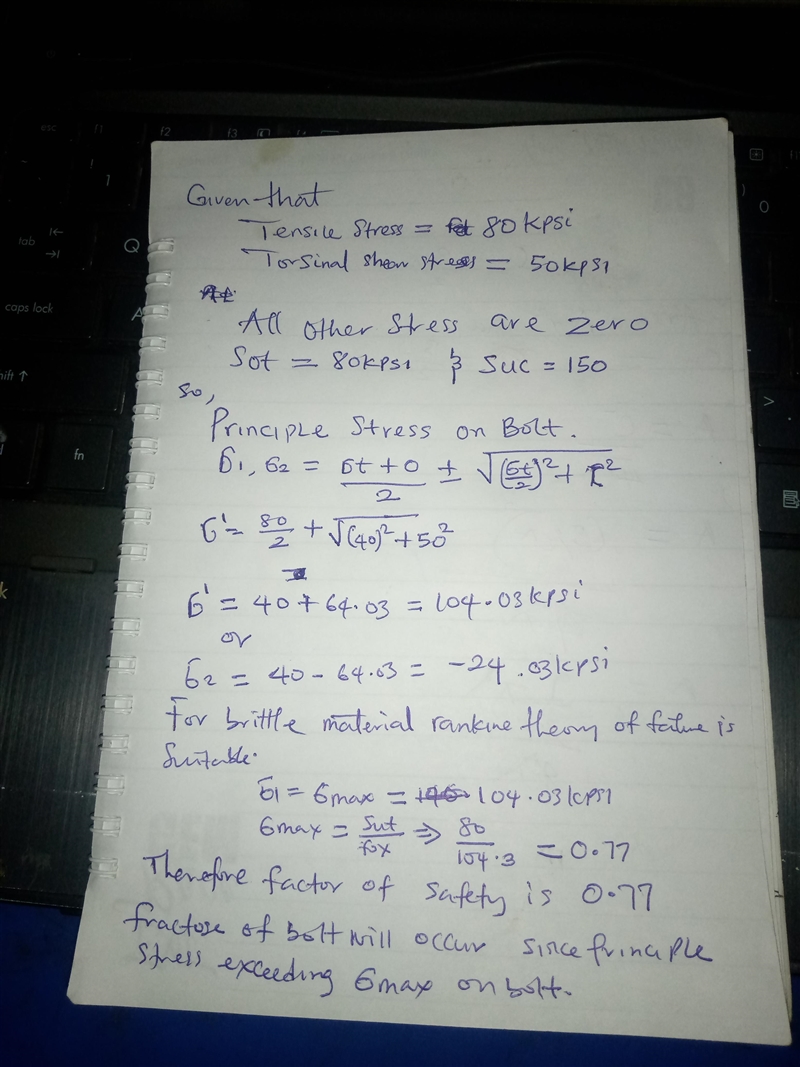 Given that
Tensile Stress = 80 kpsi
Torsinal shear stress = 50kpsi
All other stress are zero
Sot = 80kpsi & Suc = 150
so,
Principle Stress on Bolt.
б1, б2 = бt + 0 / 2 ± √(бt/2)² + τ²
б' = 80/2 + √(40)² + 50²
б' = 40 + 64.03 = 104.03kpsi
or
б2 = 40 - 64.03 = -24.03kpsi
For brittle material rankine theory of failure is
Suitable.
б1 = бmax = 104.03kpsi
бmax = Sut/fox ⇒ 80/104.3 = 0.77
Therefore factor of safety is 0.77
fractose of bolt will occur since principle
stress exceeding бmax on bolt.
esc f1 f2 f3
tab Q
caps lock A
shift ↑
fn